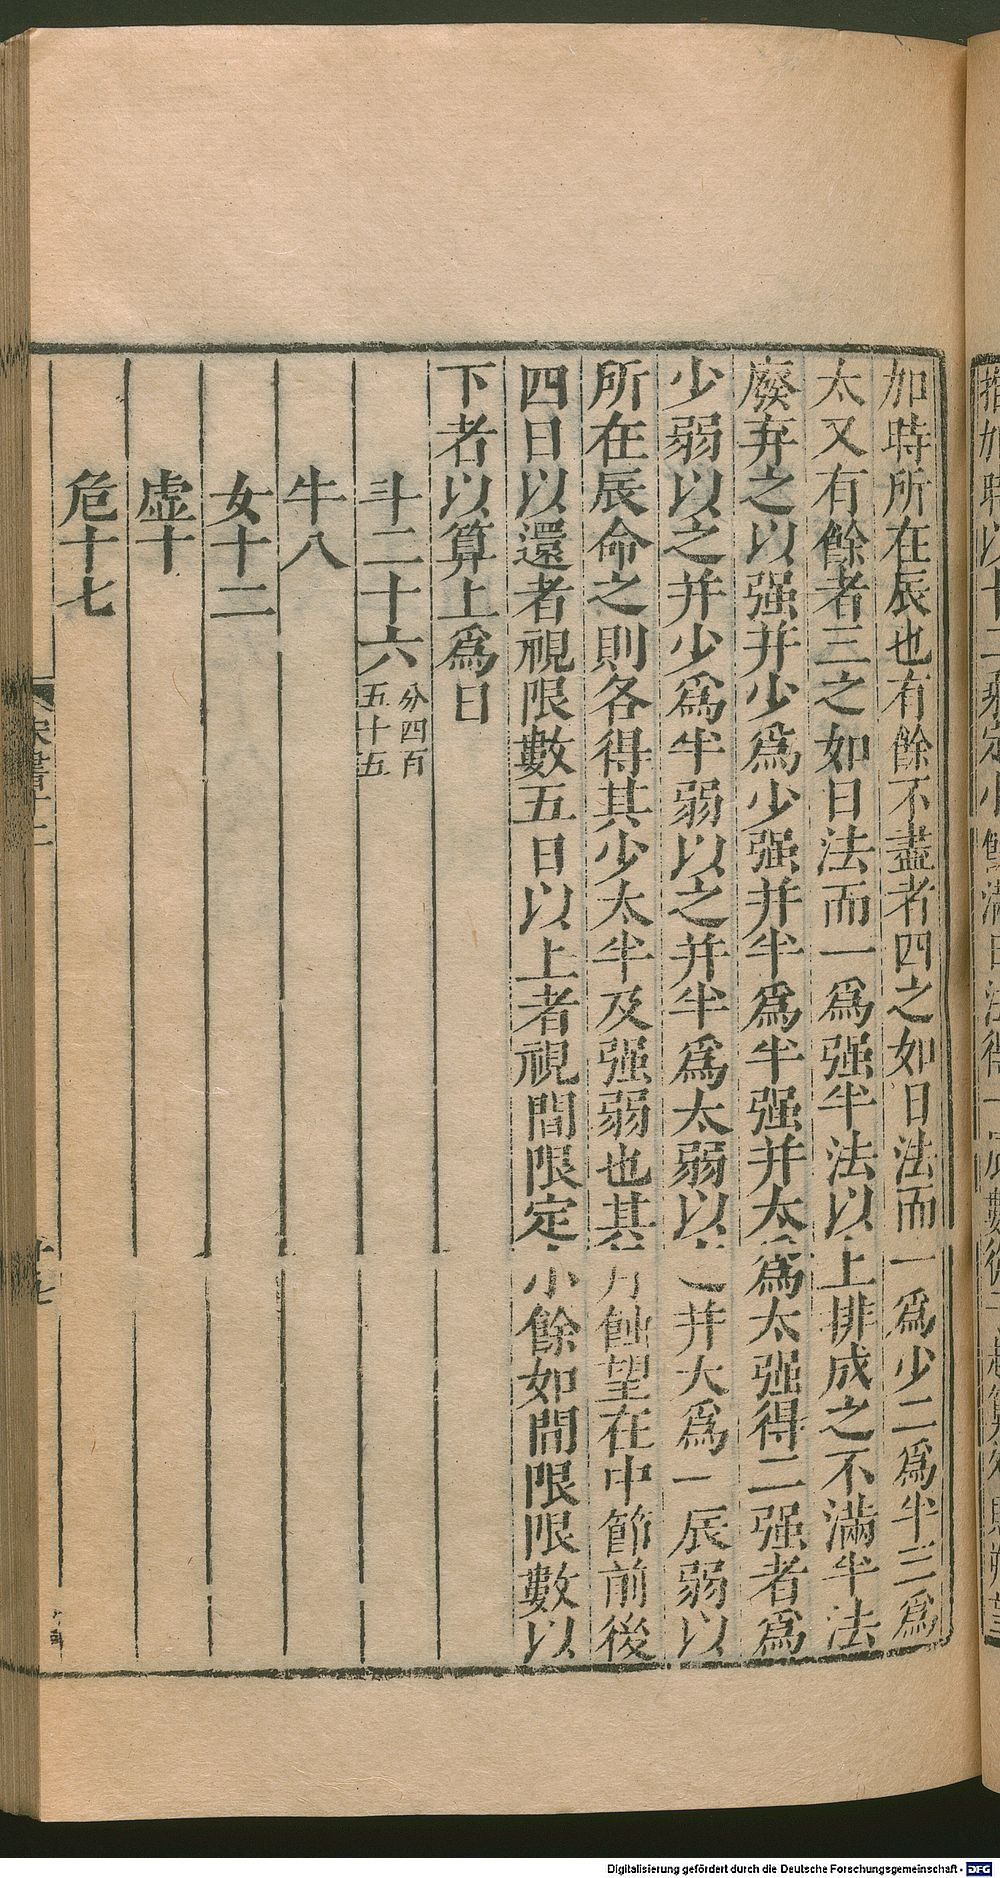 加時所在辰也有餘不盡者四之如日法而一爲少二爲半三爲
太又有餘者三之如日法而一爲强半法以上排成之不滿半法
廢弃之以强并少爲少强并半爲半强并太爲太强得二强者爲
少弱以之并少爲半弱以之并半爲太弱以之并太爲一辰弱以
所在辰命之則各得其少太半及强弱也其月蝕望在中節前後
四日以還者視限數五日以上者視間限定小餘如間限限數以
下者以算上爲日
斗二十六分四百
五十五
牛八
女十二
虛十
危十七
宋書十二
Digitalisierung gefördert durch die Deutsche Forschungsgemeinschaft - DFG